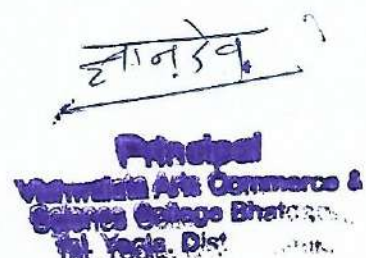 ज्ञानदेव
Principal
Vishwalata Arts Commerce &
Science College Bhatgaon
Tal. Yeola, Dist.